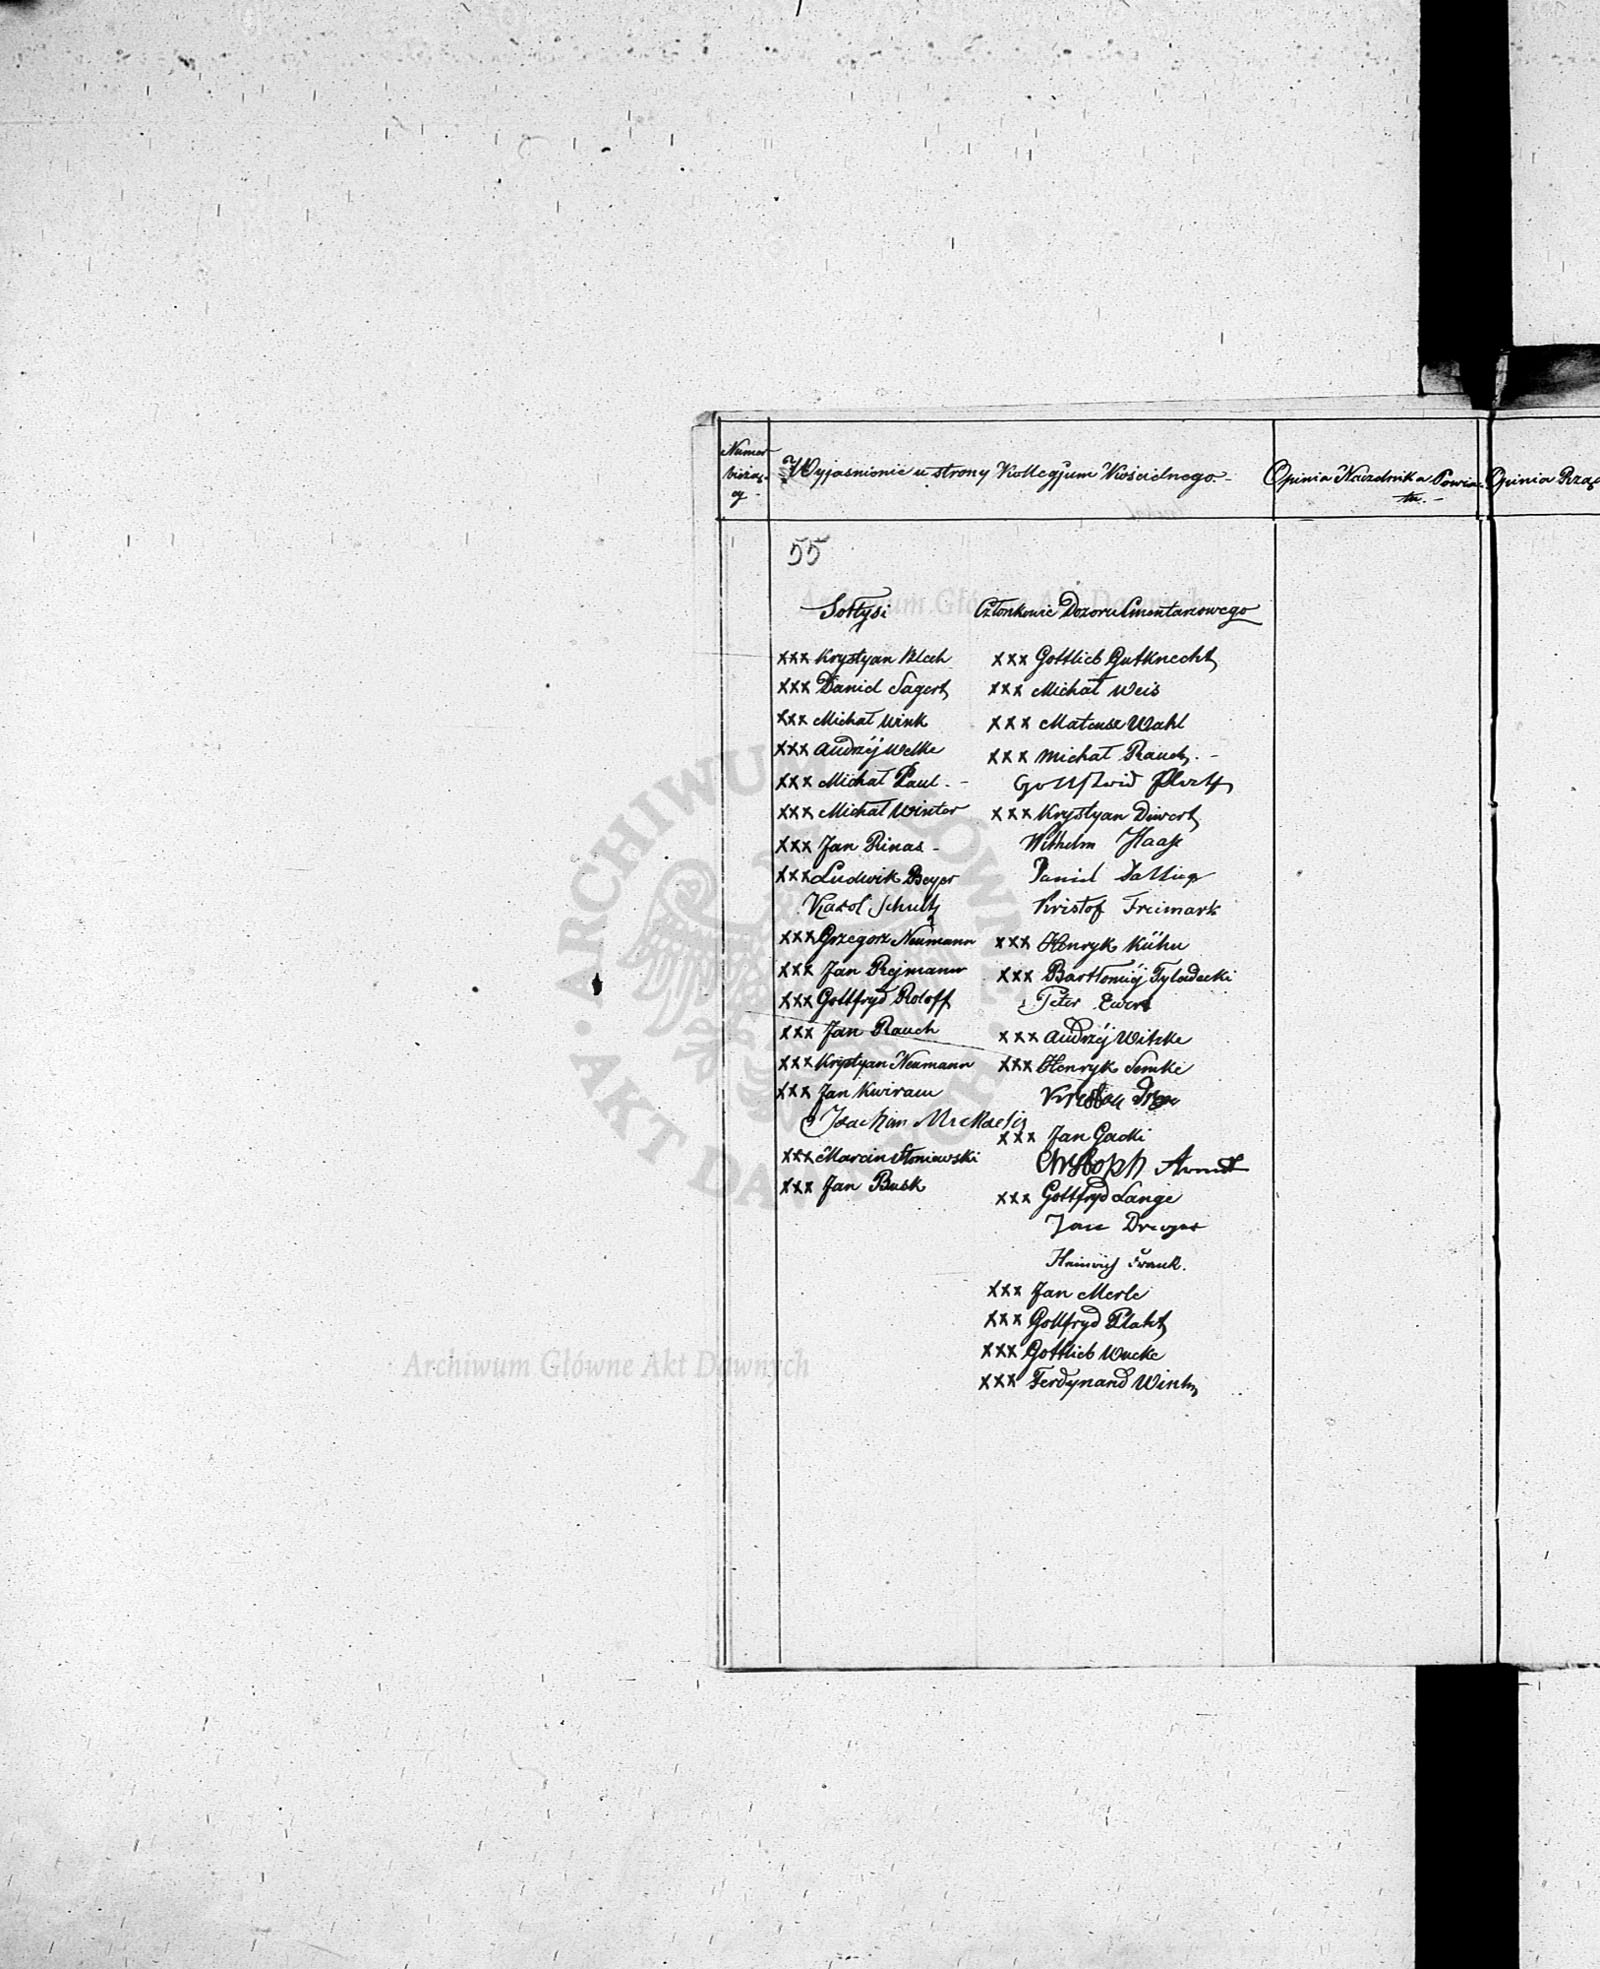 Numer
bieżą-
cy -
Wyjasnienie ze strony Kollegjum Kościelnego. -
Opinia Naczelnika Powia-
tu. -
Opinia Rzą
55
Sołtysi
xxx Krystyan Blech
xxx Daniel Sagert
xxx Michał Wink
xxx Andrzéj Welke
xxx Michał Paul. -
xxx Michał Winter
xxx Jan Rinas -
xxx Ludwik Beyer
Karol Schultz
xxx Grzegorz Neümann
xxx Jan Rejmann
xxx Gottfryd Roloff
xxx Jan Rauch
xxx Krystyan Neumann
xxx Jan Kwiram
Joachim Michaelis
xxx Marcin Słoniawski
xxx Jan Busk
Członkowie Dozoru Cmentarzowego
xxx Gottlieb Gutknecht
xxx Michał Weis
xxx Mateusz Wahl
xxx Michał Rauch. -
xxx Krystyan Diwert
Wilhelm Haase
Daniel
Kristof Freimark
xxx Henryk Kühn
xxx Bartłoméj
Peter Ewert
xxx Andrzéj Witzke
xxx Henryk Semke
xxx Jan Gadki
Christoph Arndt
xxx Gottfryd Lange
Jan Dreger
Heinrich Frank.
xxx Jan Merle
xxx Gottfryd Platt
xxx Gottlieb Wucke
xxx Ferdynand Winter
Archiwum Główne Akt Dawnych